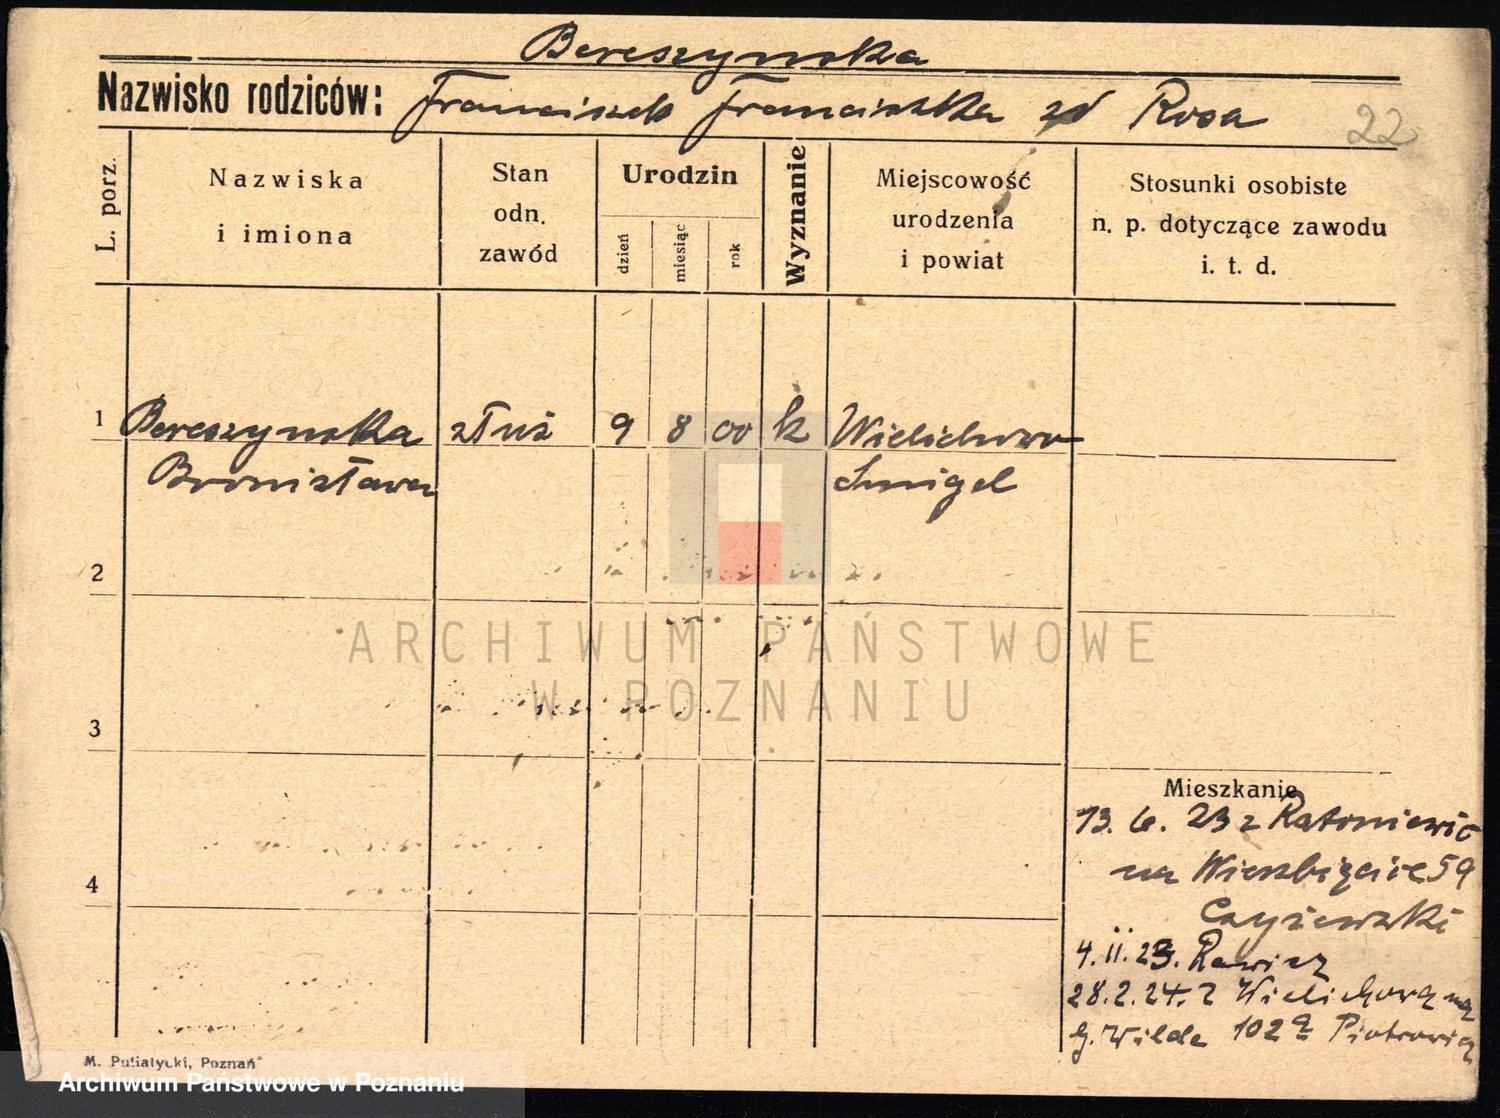 Bereszynska
Nazwisko rodziców: Franciszek Franciszka zd Rosa
22
L. porz.
Nazwiska
i imiona
Stan
odn.
zawód
Urodzin
dzień
miesiąc
rok
Wyznanie
Miejscowość
urodzenia
i powiat
Stosunki osobiste
n. p. dotyczące zawodu
i. t. d.
1 Bereszynska złuż 9 8 00 k Wielichowo
Bronisława Smigel
2
ARCHIWUM PAŃSTWOWE
W POZNANIU
3
Mieszkanie
13. 6. 23 z Ratoniewic
na Wierzbięcice 59
4
4. II. 23. Rawicz
28. 2. 24. z Wielichowa na
G. Wilde 102a Piotrowicz
M. Putiatycki, Poznań
Archiwum Państwowe w Poznaniu